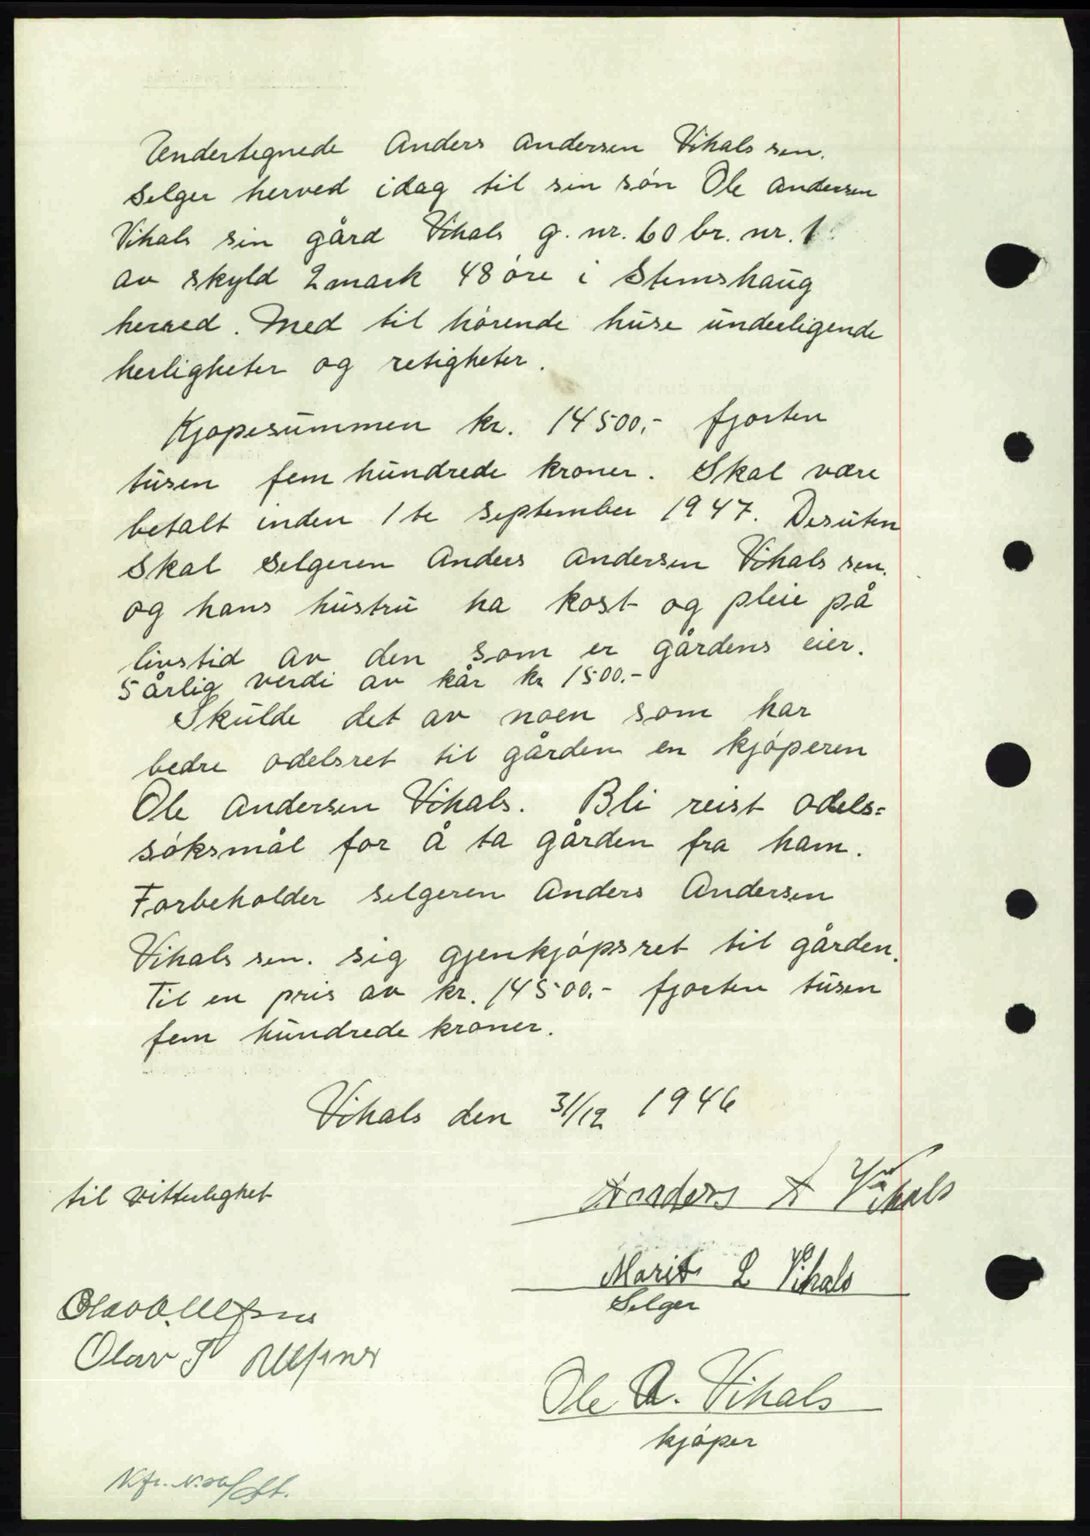 Undertegnede Anders Andersen Vikals sen.
Selger herved idag til sin søn Ole Andersen
Vikals sin gård Vikals g. nr. 60 br. nr. 1
av skyld 2 mark 48 øre i Stemshaug
herred. Med til hørende huse underligende
herligheter og retigheter.
Kjøpesummen kr. 14500,- fjorten
tusen fem hundrede kroner. Skal være
betalt inden 1te September 1947. Desuten
Skal Selgeren Anders Andersen Vikals sen.
og hans hustru ha kost og pleie på
livstid av den som er gårdens eier.
5 årlig verdi av kår kr 1500.-
Skulde det av noen som har
bedre odelsret til gården en kjøperen
Ole Andersen Vikals. Bli reist odels=
søksmål for å ta gården fra ham.
Forbeholder selgeren Anders Andersen
Vikals sen. sig gjenkjøpsret til gården.
Til en pris av kr. 14500.- fjorten tusen
fem hundrede kroner.
Vikals den 31/12 1946
til vitterlighet
Anders A Vikals
Marit L Vikals
Selger
Olav
Olav
Ole A. Vikals
kjøper